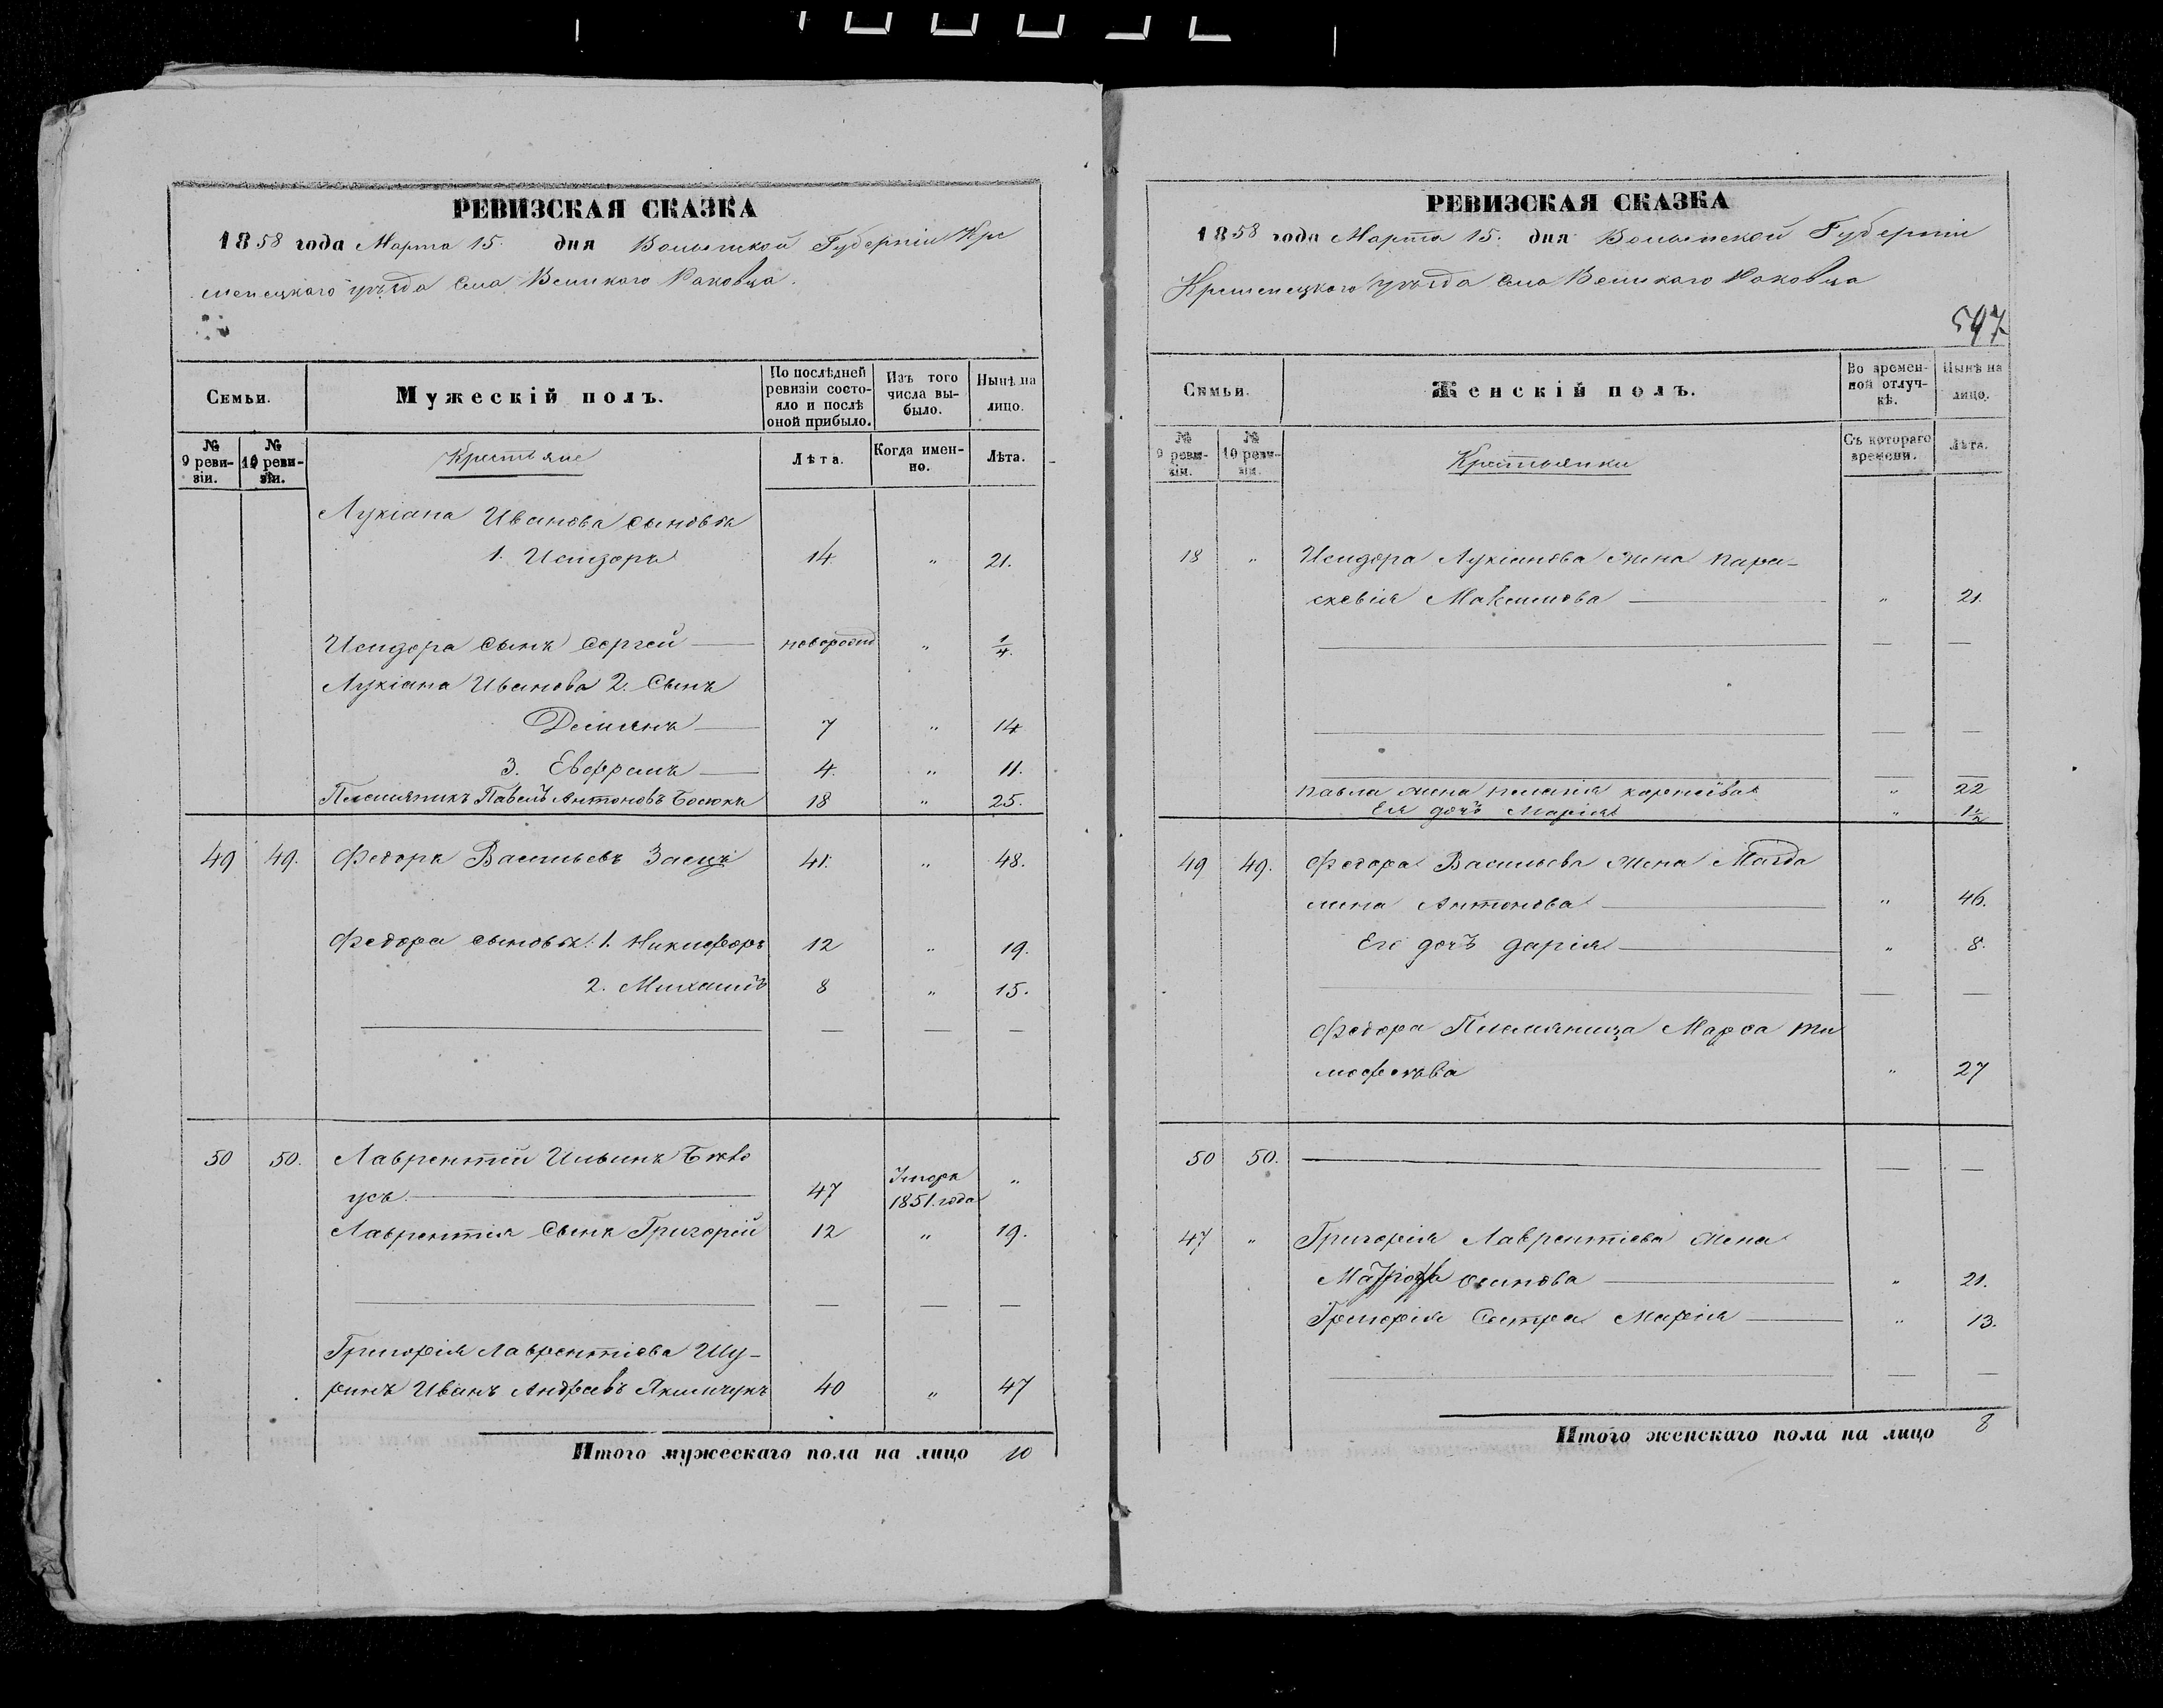 РЕВИЗСКАЯ СКАЗКА
1858 года Марта 15. дня Волынской Губерніи Кре
менецкаго уѣзда села Великаго Раковца.
Семьи.
Мужескій полъ.
По послѣдней ревизіи состояло и послѣ оной прибыло.
Изъ того числа выбыло.
Нынѣ на лицо.
№ 9 ревизіи.
№ 10 ревизіи.
Крестьяне
Лѣта.
Когда именно.
Лѣта.
Лукіана Иванова сыновья
1. Исидоръ 14. " 21.
Исидора сынъ Сергей — новорожд " 1/4.
Лукіана Иванова 2. Сынъ
Демянъ — 7 " 14
3. Евфремъ — 4. " 11.
Племяникъ Павелъ Антоновъ 18 " 25.
49 49. Федоръ Васильевъ Заецъ 41. " 48.
Федора сыновья: 1. Никифоръ 12 " 19.
2. Михаилъ 8 " 15.
— — — —
50 50. Лаврентій Ильинъ
усъ — 47 Умеръ 1851. года "
Лаврентія Сынъ Григорій 12 " 19.
— — — —
Григорія Лаврентіева Шу-
ринъ Иванъ Андреевъ Якимчукъ 40 " 47
Итого мужескаго пола на лицо 10
РЕВИЗСКАЯ СКАЗКА
1858 года Марта 15. дня Волынской Губерніи
Кременецкаго уѣзда села Великаго Раковца
597
Семьи.
Женскій полъ.
Во временной отлучкѣ.
Нынѣ на лицо.
№ 9 ревизіи.
№ 10 ревизіи.
Крестьянки
Съ котораго времени.
Лѣта.
18 " Исидора Лукіанова жена Пара-
скевія Максимова — " 21.
— — —
— — —
— — —
Павла жена Пелагія Корнѣева " 22
Ея дочъ Марія " 1½
49 49. Федора Васильева жена Магда
лина Антонова — " 46.
Его дочъ Дарія — " 8.
— — —
Федора Племяница Марѳа Ти
мофеева " 27
50 50. — — —
47 " Григорія Лаврентіева жена
Осипова — " 21.
Григорія Сестра Марія — " 13.
— — —
Итого женскаго пола на лицо 8